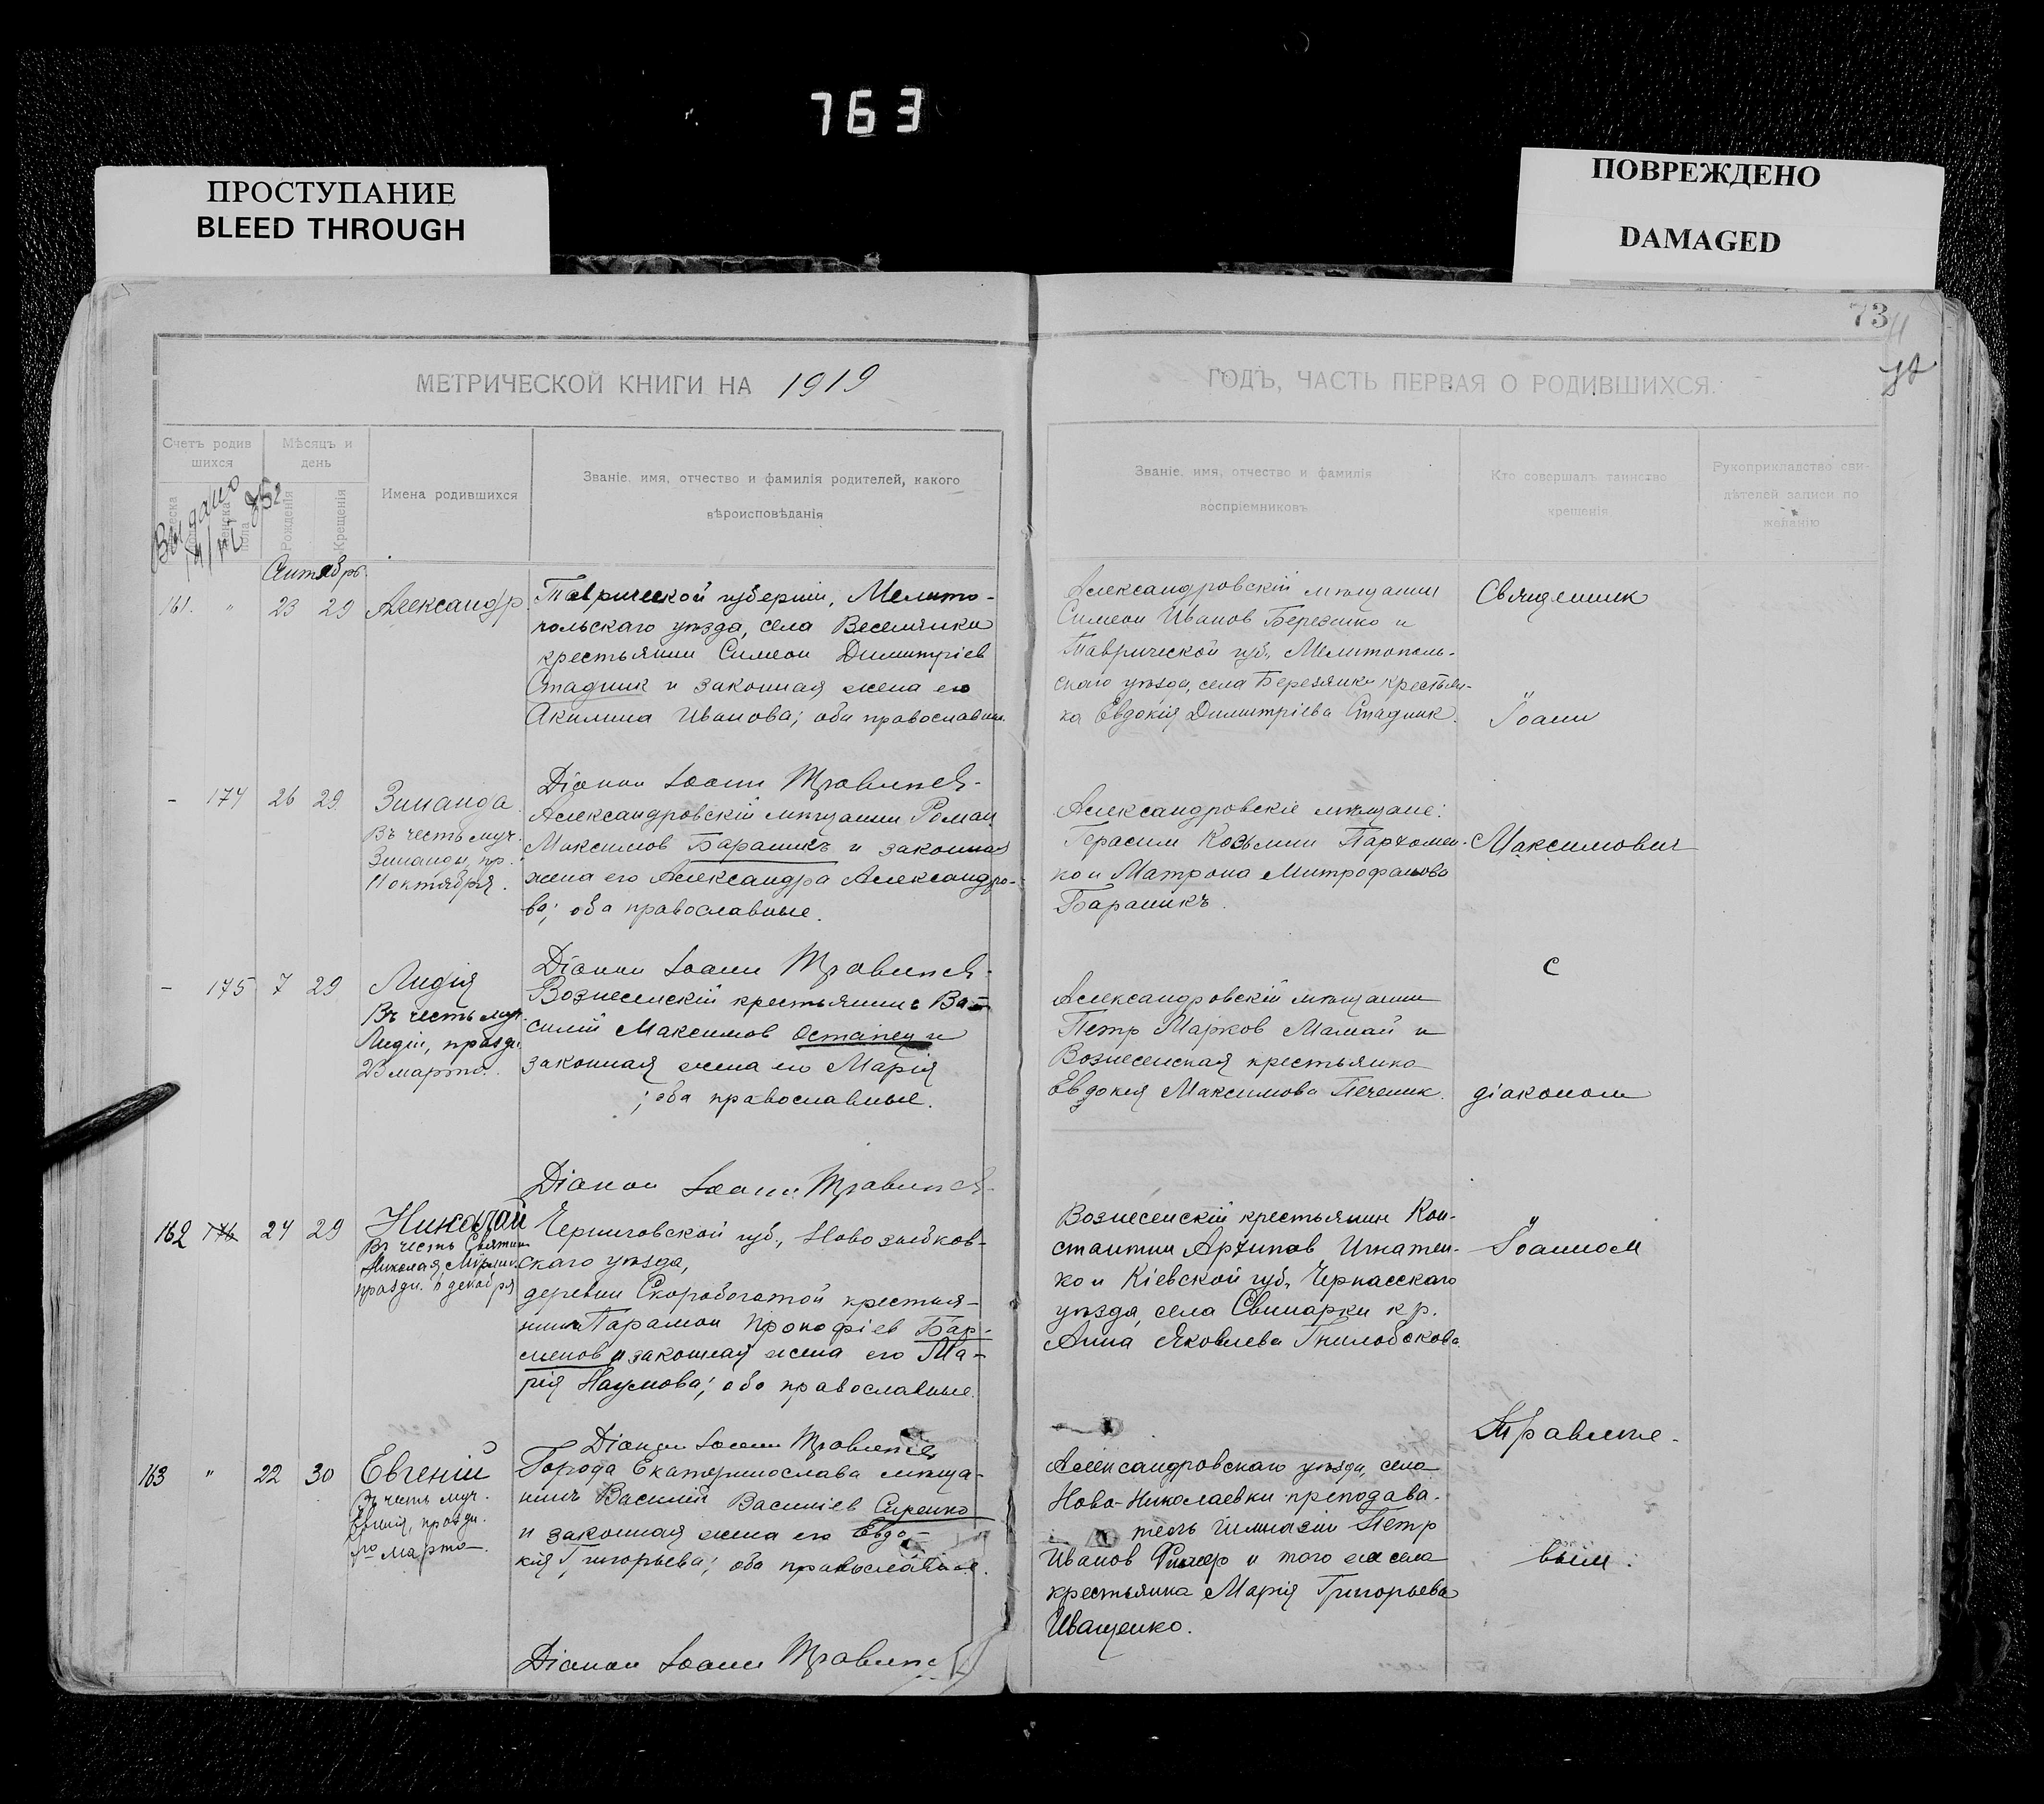 763
ПРОСТУПАНИЕ
BLEED THROUGH
ПОВРЕЖДЕНО
DAMAGED
73
МЕТРИЧЕСКОЙ КНИГИ НА 1919
ГОДЪ, ЧАСТЬ ПЕРВАЯ О РОДИВШИХСЯ.
Счетъ родив
шихся
Мѣсяцъ и
день
Рожденія
Крещенія
Имена родившихся
Званіе, имя, отчество и фамилія родителей, какого
вѣроисповѣданія
Званіе, имя, отчество и фамилія
воспріемниковъ
Кто совершалъ таинство
крещенія
Рукоприкладство сви-
дѣтелей записи по
желанію
Выдано
Сентябрь
161. " 23 29 Александр
Таврической губерніи, Мелито-
польскаго уѣзда, села Веселянки
крестьянин Симеон Димитріев
Стадник и законная жена его
Акилина Иванова; оба православны.
Діакон Іоанн Травлев
Александровскій мѣщанин
Симеон Иванов Бережко и
Таврической губ., Мелитополь-
скаго уѣзда, села Березянки крестьян-
ка Евдокія Димитріева Стадник.
Священник
Іоанн
- 174 26 29 Зинаида
Въ честь муч.
Зинаиды, пр.
11 октября.
Александровскій мѣщанин Роман
Максимов Бараникъ и законная
жена его Александра Александро-
ва; оба православные.
Діакон Іоанн Травлев
Александровскіе мѣщане:
Герасим Козьмин Пархомен-
ко и Матрона Митрофанова
Бараникъ.
Максимович
с
- 175 7 29 Лидія
Въ честь муч.
Лидіи, праздн.
23 марта.
Вознесенскій крестьянинъ Ва-
силій Максимов Остапец и
законная жена его Марія
; оба православные.
Діакон Іоанн Травлев
Александровскій мѣщанин
Петр Марков Мамай и
Вознесенская крестьянка
Евдокія Максимова Печеник.
діаконом
162 176 24 29 Николай
Въ честь Святит.
Николая, Мѵрлик.
праздн. 6 декабря
Черниговской губ., Новозыбков-
скаго уѣзда,
деревни Скоробогатой крестья-
нин Парамон Прокофіев Бар-
сменов и законная жена его Ма-
рія Наумова; оба православные.
Діакон Іоанн Травлев
Вознесенскій крестьянин Кон-
стантин Архипов Игнатен-
ко и Кіевской губ., Черкасскаго
уѣзда, села Свинарки кр.
Анна Яковлева Гнилобокова.
Іоанном
Травле-
163 " 22 30 Евгеній
Въ честь муч.
Евгенія, праздн.
7го марта.
Города Екатеринослава мѣща-
нинъ Василій Василіев Сиренко
и законная жена его Евдо-
кія Григорьева; оба православные.
Діакон Іоанн Травлев
Александровскаго уѣзда, села
Ново-Николаевки преподава-
тель гимназіи Петр
Иванов и того же села
крестьянка Марія Григорьева
Иващенко.
вым.